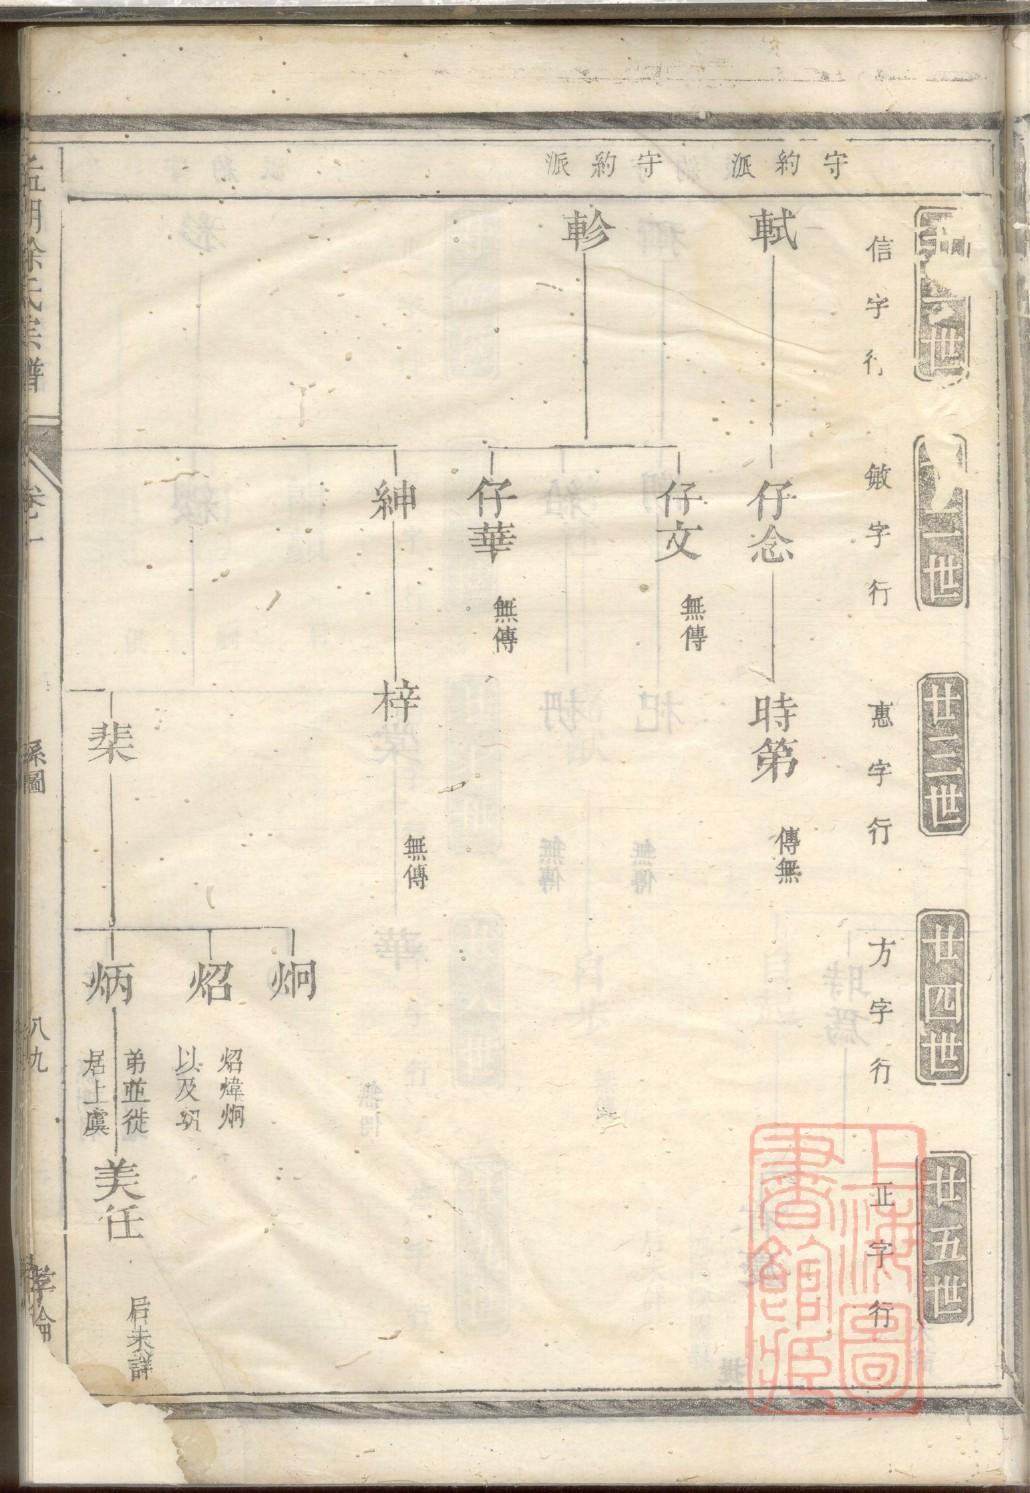 守約派
守約派
世
信字行
一世
敏字行
廿三世
惠字行
廿四世
方字行
廿五世
正字行
軾
仔念
時第
傳無
軫
仔文
無傳
仔華
無傳
紳
梓
無傳
棐
炯
炤
炳
炤煒炯
以及
弟並徙
居上虞
美任
后未詳
徐氏宗譜
卷一
系圖
八九
上海圖書館藏